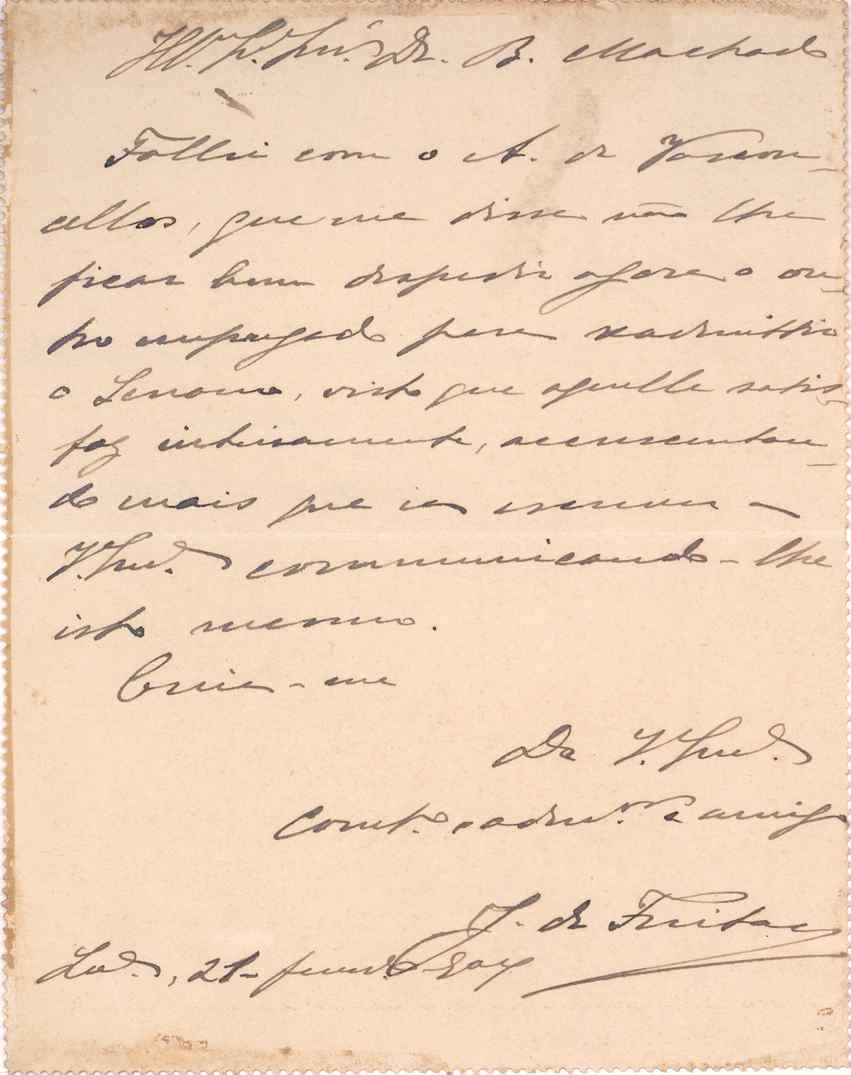 Ill.mo Ex.mo Snr. Dr. B. Machado
Fallei com o A. de Vascon-
cellos, que me disse não lhe
ficar bem despedir agora o ou-
tro empregado para readmittir
o, visto que aquelle satis-
faz inteiramente, accrescentan-
do mais que ia escrever a
V. Exa. communicando-lhe
isto mesmo.
Creia-me
De V. Exa.
const.e admor. e amigo
J. de Freitas
21-